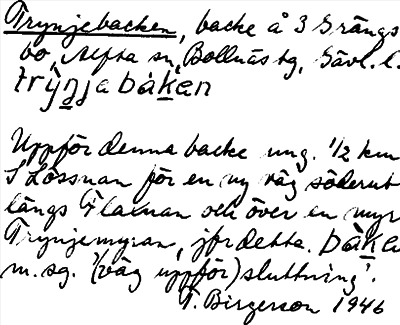 Trynjebacken, backe å 3 Grängs
bo, Alfta sn, Bollnäs tg, Gävl. l.
trỳn̲ja bàk̲en
Uppför denna backe ung. 1/2 km
S Lössnan för en ny väg söderut
längs Flaxnan och över en myr
Trynjemyran, jfr detta. bàk̲e
m. sg. '(väg uppför) sluttning'.
T. Birgerson 1946